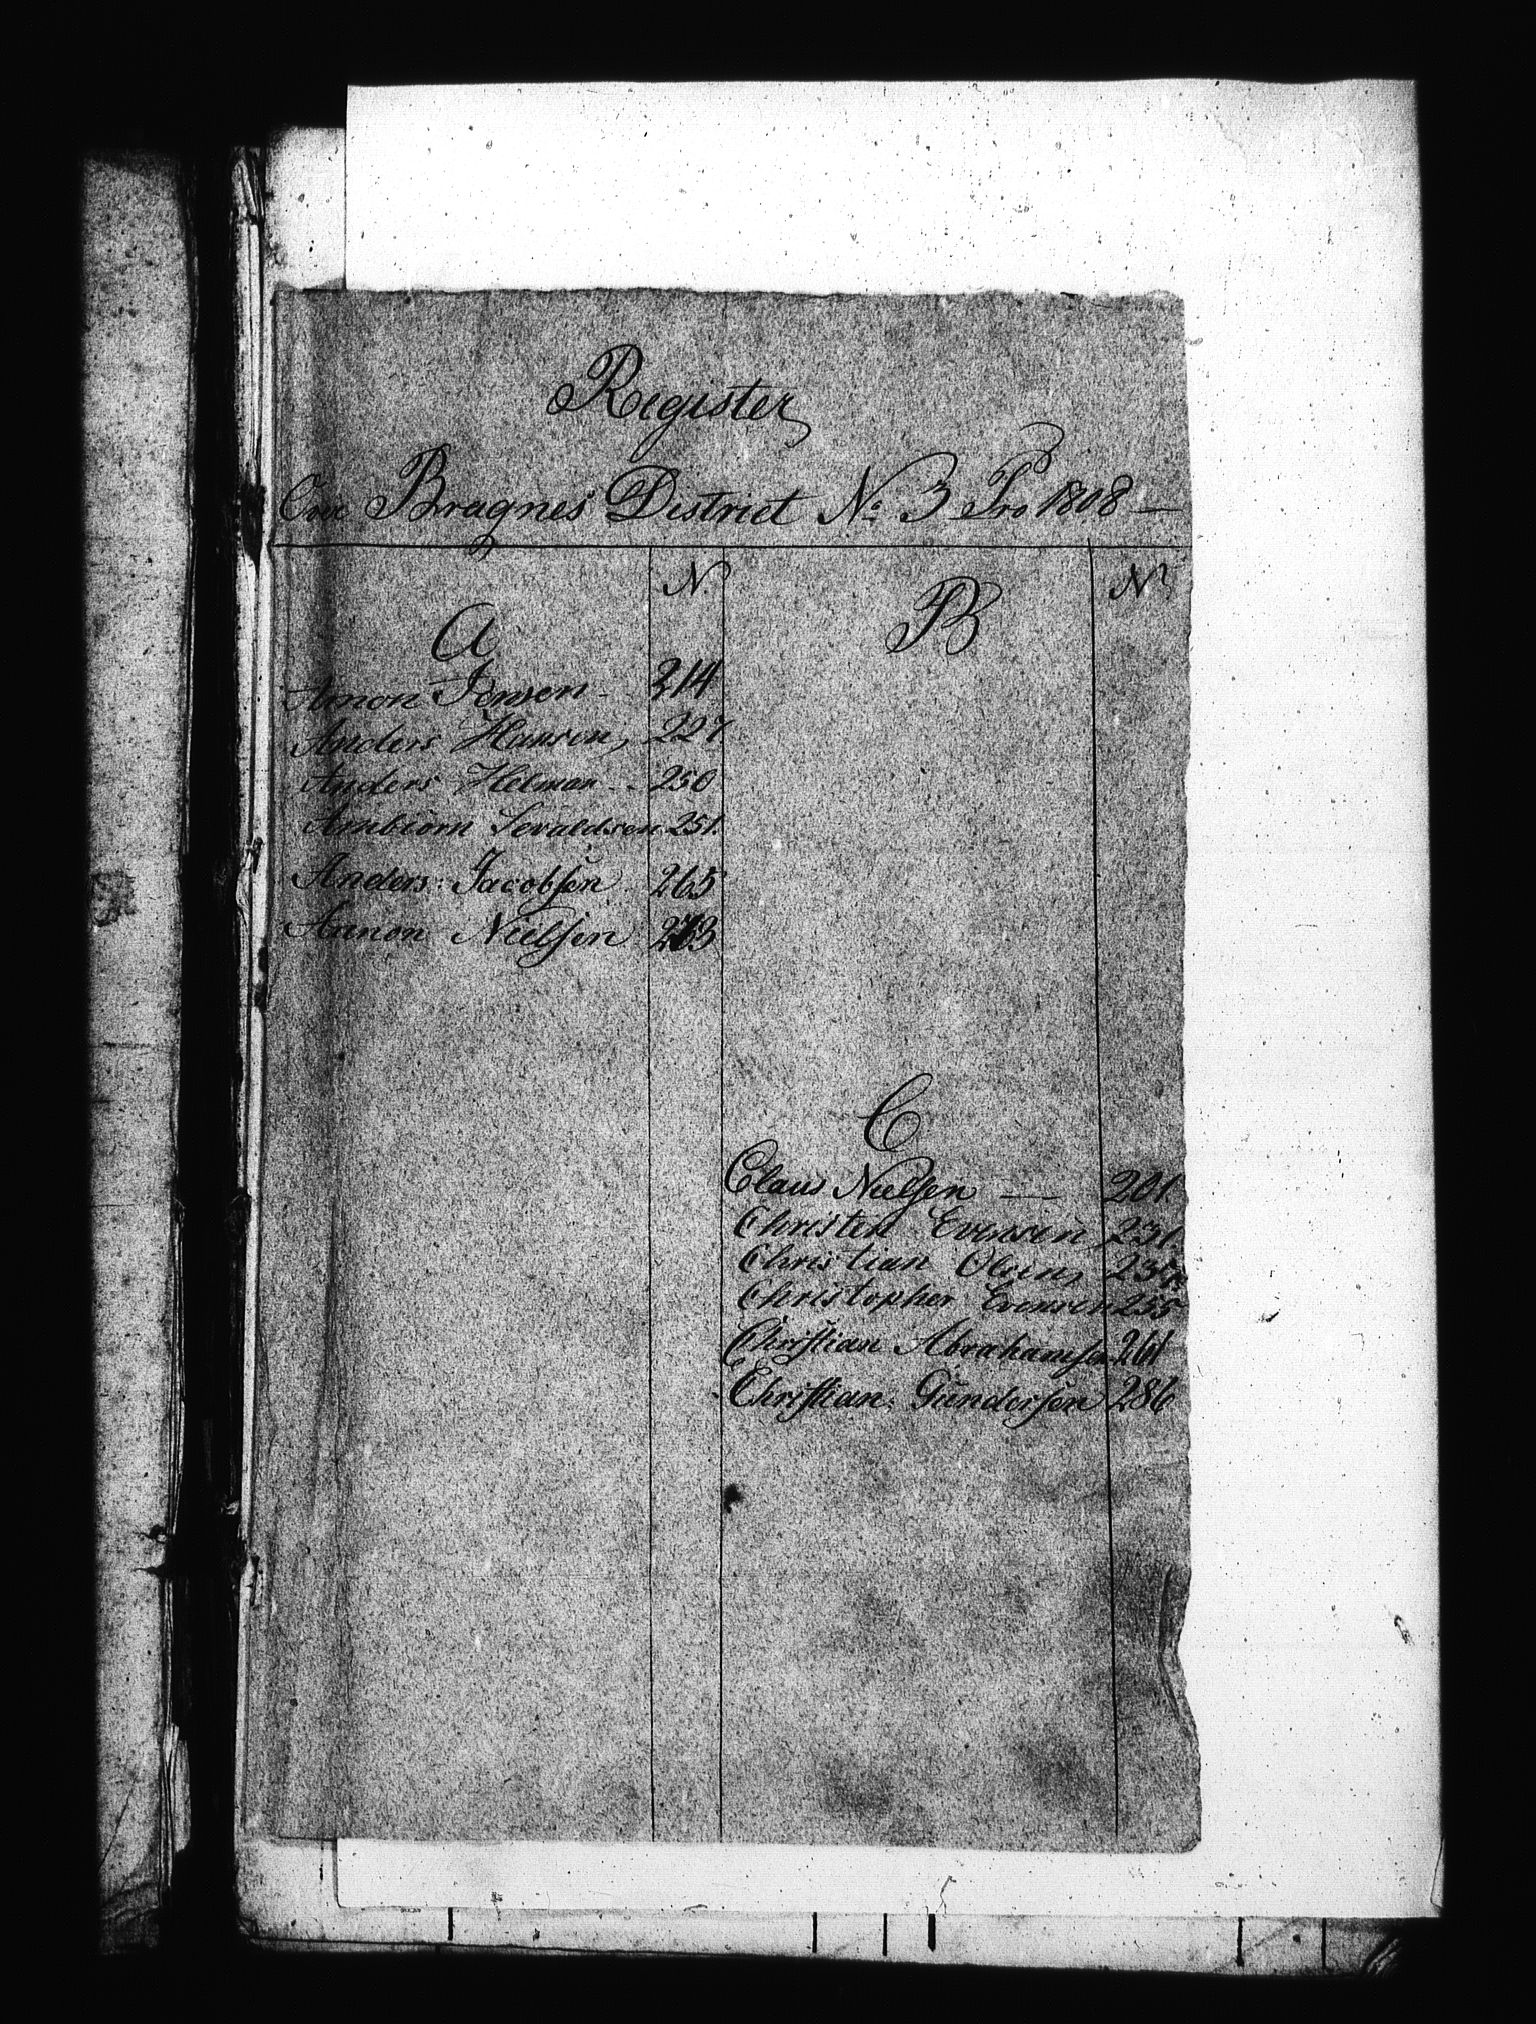 Register
Over Bragnes District No: 3 Pro 1808 —
A
N.
Amon Jensen - 214
Anders Hansen, 227
Anders Helman - 250
Ambiorn Sevaldsen 251.
Anders: Jacobsen 265
Aanon Nielsen 273
B
No
C
Claus Nielsen — 201
Christen Evensen, 231.
Christian Olsen,
Christopher Evensen 255
Christian Abrahamsen 261
Christian: Gundersen 286